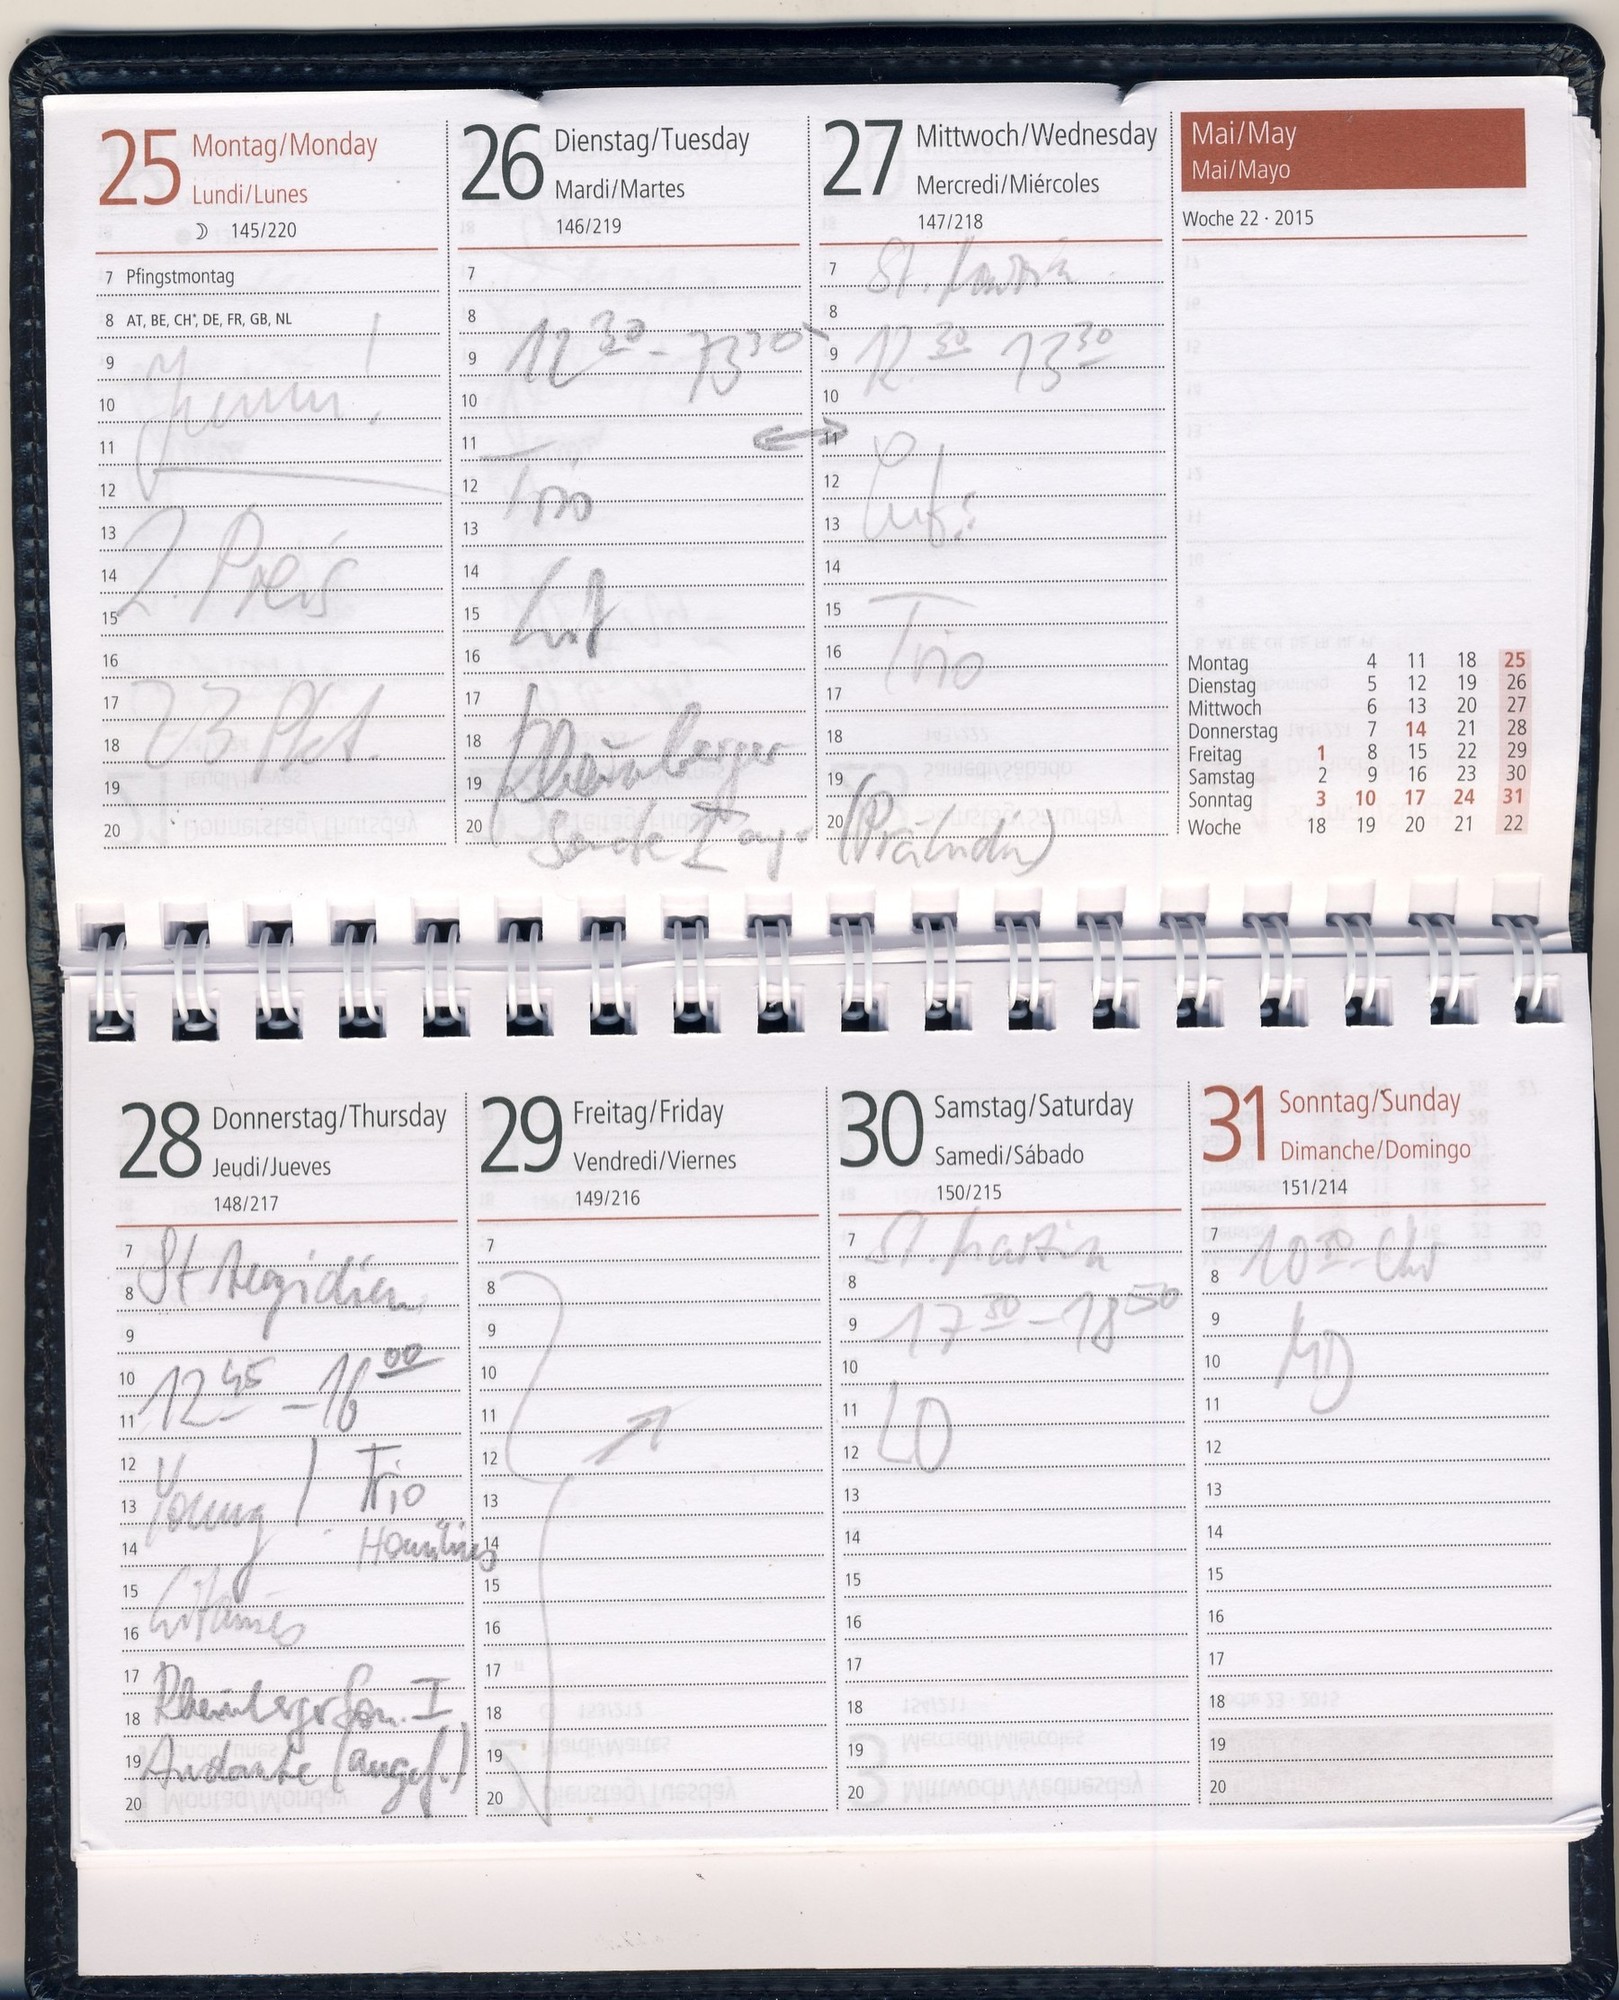 25 Montag/Monday
Lundi/Lunes
☽ 145/220
7 Pfingstmontag
8 AT, BE, CH*, DE, FR, GB, NL
9
10
11
12
13
14
15
16
17
18
19
20
2. Preis
23 Pkt.
26 Dienstag/Tuesday
Mardi/Martes
146/219
7
8
9
10
11
12
13
14
15
16
17
18
19
20
12 30 - 13 30
Trio
Lit
Rheinberger
27 Mittwoch/Wednesday
Mercredi/Miércoles
147/218
7
8
9
10
11
12
13
14
15
16
17
18
19
20
St. Martin
12 30 13 30
Trio
Mai/May
Mai/Mayo
Woche 22 · 2015
Montag 4 11 18 25
Dienstag 5 12 19 26
Mittwoch 6 13 20 27
Donnerstag 7 14 21 28
Freitag 1 8 15 22 29
Samstag 2 9 16 23 30
Sonntag 3 10 17 24 31
Woche 18 19 20 21 22
28 Donnerstag/Thursday
Jeudi/Jueves
148/217
7
8
9
10
11
12
13
14
15
16
17
18
19
20
St Aegidien
12 45 - 16 00
Young / Trio
Litanies
Rheinberger Son. I
Andante (angef.)
29 Freitag/Friday
Vendredi/Viernes
149/216
7
8
9
10
11
12
13
14
15
16
17
18
19
20
30 Samstag/Saturday
Samedi/Sábado
150/215
7
8
9
10
11
12
13
14
15
16
17
18
19
20
St. Martin
17 30 - 18 30
LO
31 Sonntag/Sunday
Dimanche/Domingo
151/214
7
8
9
10
11
12
13
14
15
16
17
18
19
20
10 30